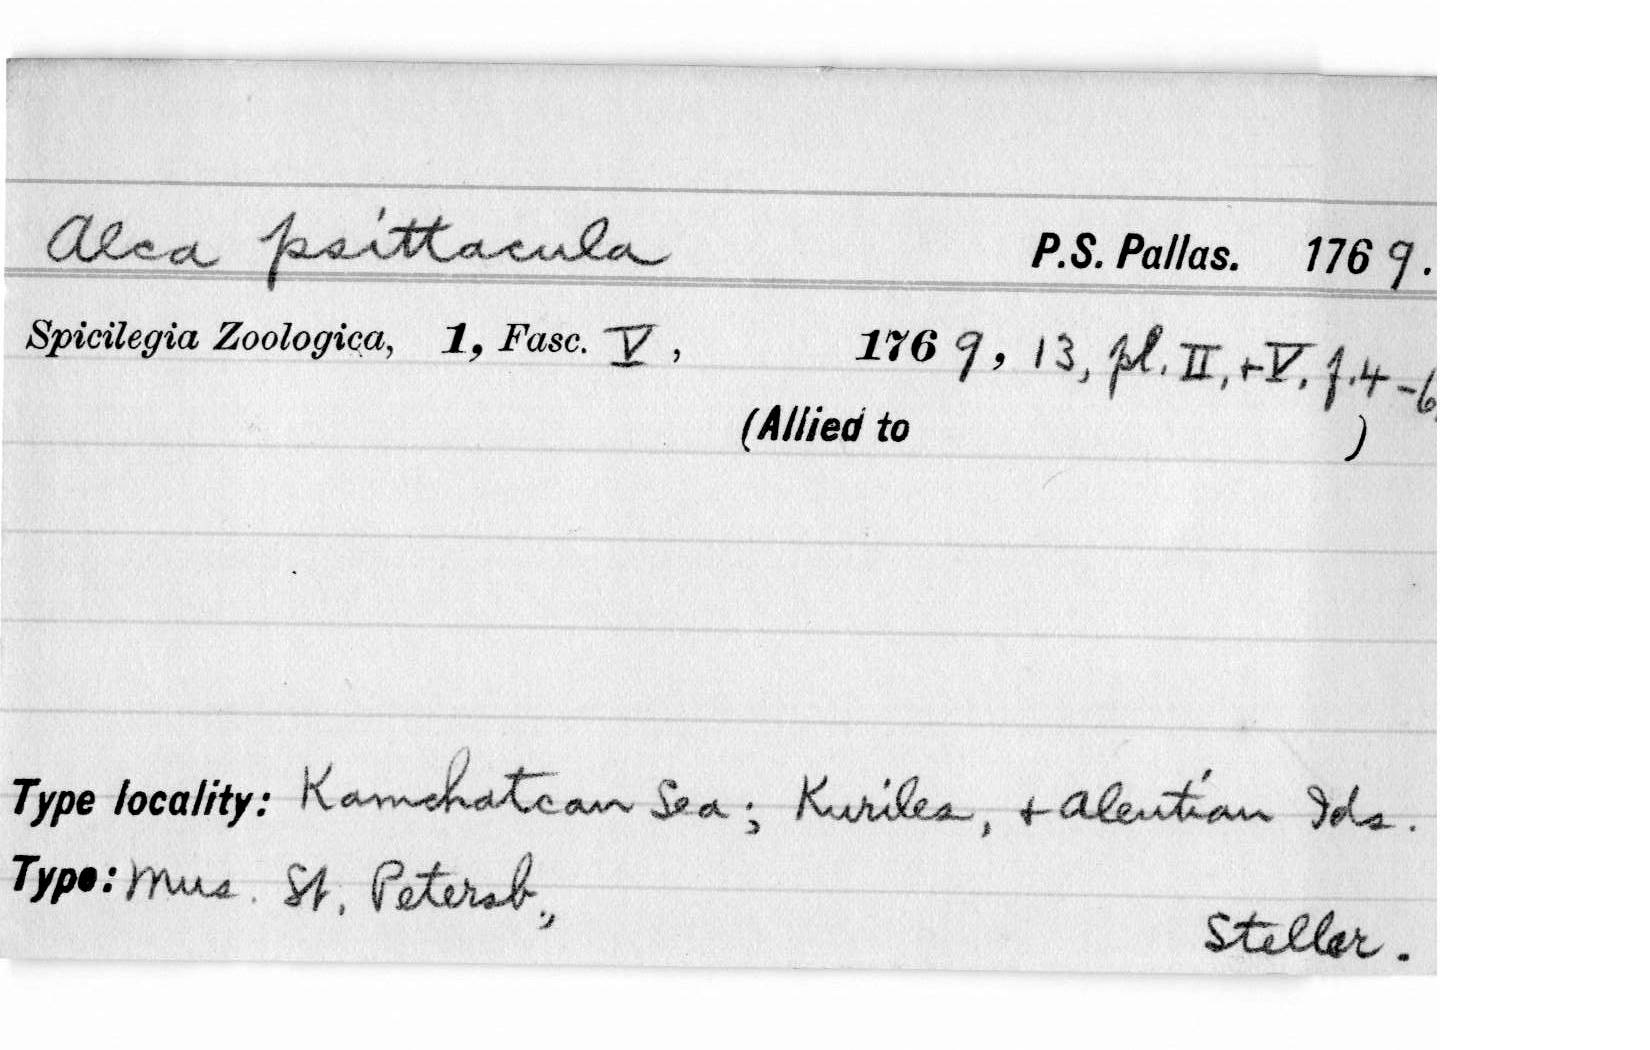 Alca psittacula P.S. Pallas. 1769.
Spicilegia Zoologica, 1, Fasc. V, 1769, 13, pl. II, + V, f. 4-6.
(Allied to )
Type locality: Kamchatcan Sea; Kuriles, + Aleutian Ids.
Type: Mus. St. Petersb.,
Steller.